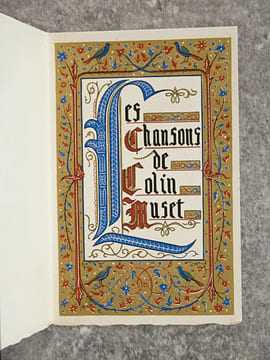 Les
Chansons
de
Colin
Muset